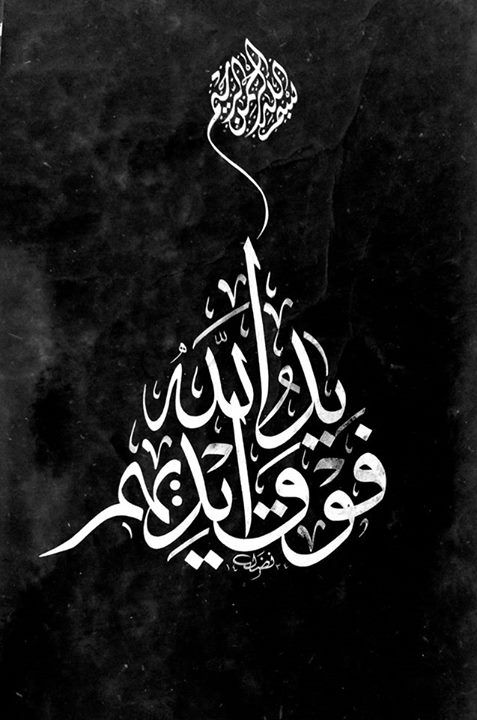 بسم الله الرحمن الرحيم
يَدُ اللَّهُ
فَوْقَ أَيْدِيهِمْ